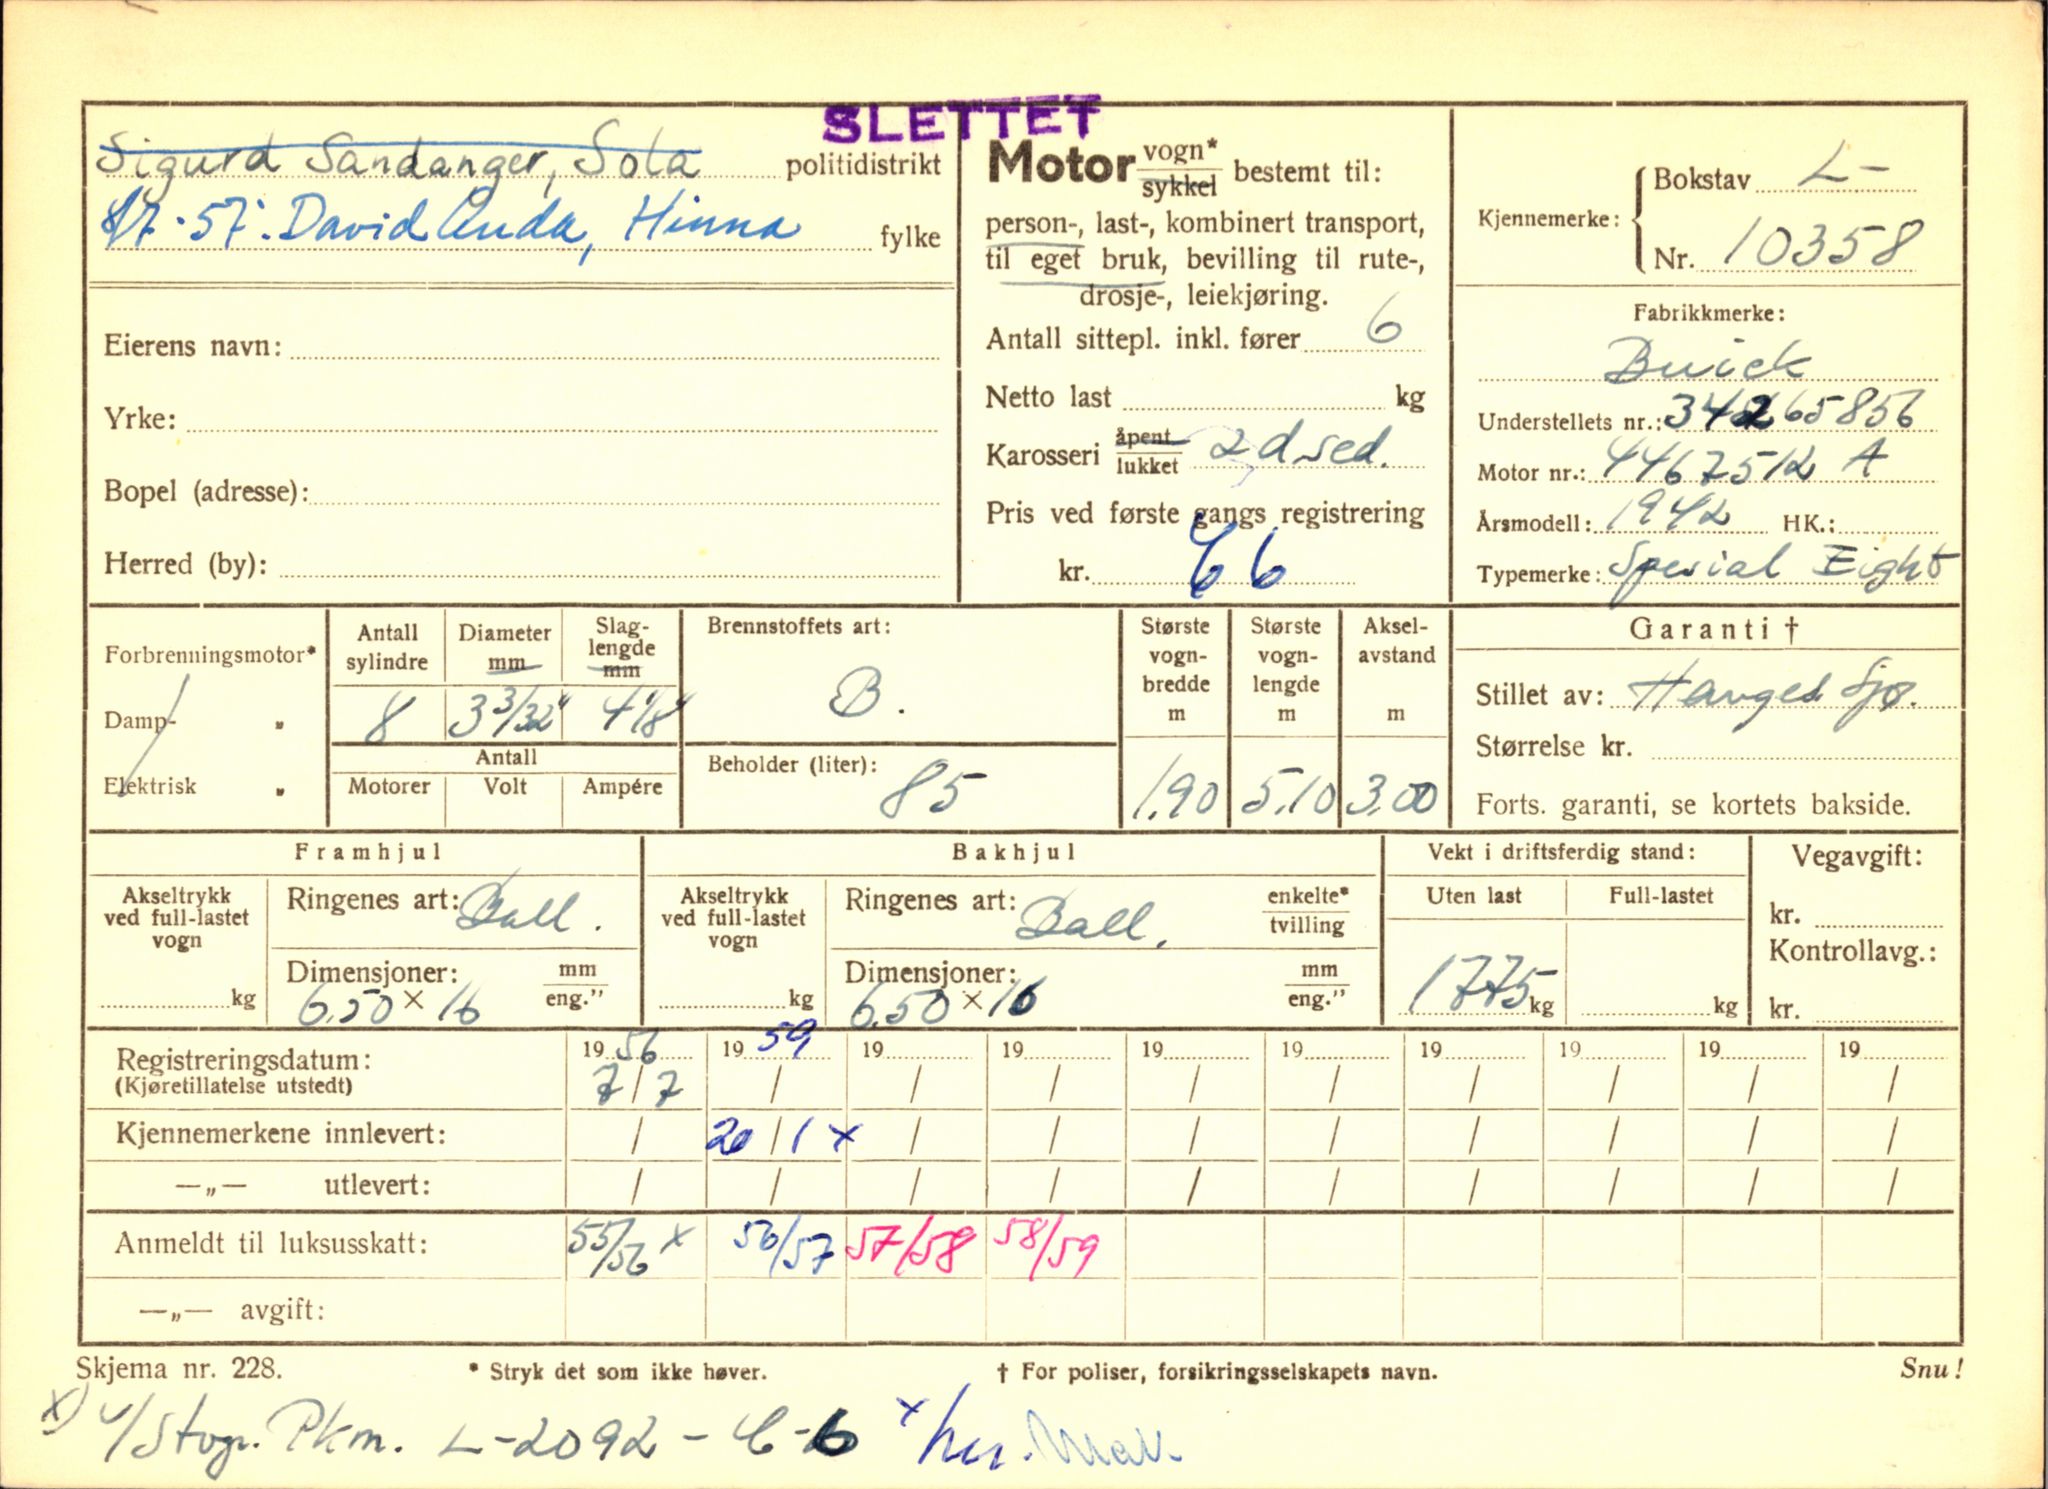 SLETTET
Sigurd Sandanger, Sola politidistrikt
17-57: David Anda, Hinna fylke
Eierens navn:
Yrke:
Bopel (adresse):
Herred (by):
Motor vogn* / sykkel bestemt til:
person-, last-, kombinert transport,
til eget bruk, bevilling til rute-,
drosje-, leiekjøring.
Antall sittepl. inkl. fører 6
Netto last kg
Karosseri åpent / lukket 2 d sed.
Pris ved første gangs registrering
kr. 66
Kjennemerke: Bokstav L-
Nr. 10358
Fabrikkmerke:
Buick
Understellets nr.: 34265856
Motor nr.: 4467512 A
Årsmodell: 1942 HK.:
Typemerke: Spesial Eight
Forbrenningsmotor*
Damp- „
Elektrisk „
Antall sylindre 8
Diameter mm 3 3/32"
Slaglengde mm 4 1/8"
Antall
Motorer Volt Ampére
Brennstoffets art:
B.
Beholder (liter):
85
Største vognbredde m 1.90
Største vognlengde m 5.10
Akselavstand m 3.00
Garanti †
Stillet av: Sjø.
Størrelse kr.
Forts. garanti, se kortets bakside.
Framhjul
Akseltrykk ved full-lastet vogn
kg
Ringenes art: Ball.
Dimensjoner: mm / eng."
6.50 × 16
Bakhjul
Akseltrykk ved full-lastet vogn
kg
Ringenes art: Ball. enkelte* / tvilling
Dimensjoner: mm / eng."
6.50 × 16
Vekt i driftsferdig stand:
Uten last Full-lastet
1775 kg kg
Vegavgift:
kr.
Kontrollavg.:
kr.
Registreringsdatum: 19 56 19 59 19 19 19 19 19 19 19 19
(Kjøretillatelse utstedt) 7/7 / / / / / / / / /
Kjennemerkene innlevert: / 20/1 x / / / / / / / /
—„— utlevert: / / / / / / / / / /
Anmeldt til luksusskatt: 55/56 x 56/57 57/58 58/59
—„— avgift:
Skjema nr. 228. * Stryk det som ikke høver. † For poliser, forsikringsselskapets navn. Snu!
x) Pkm. L-2092